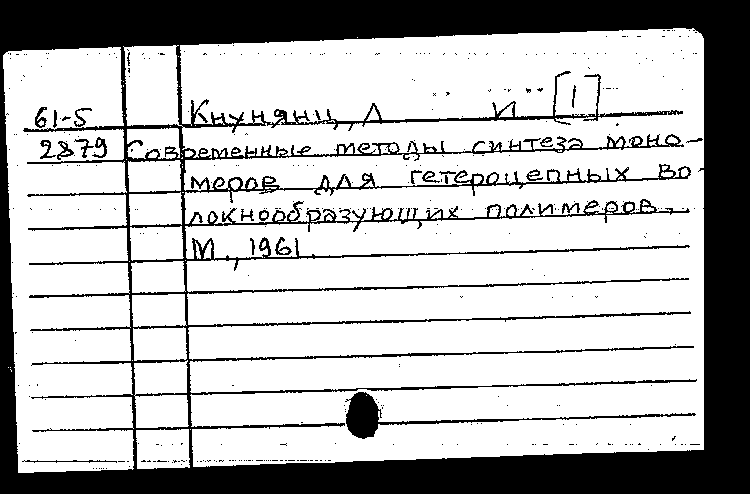 61-5 Кнунянц, Л И [1]
2879 Современные методы синтеза моно-
меров для гетероцепных во-
локнообразующих полимеров.
М., 1961.